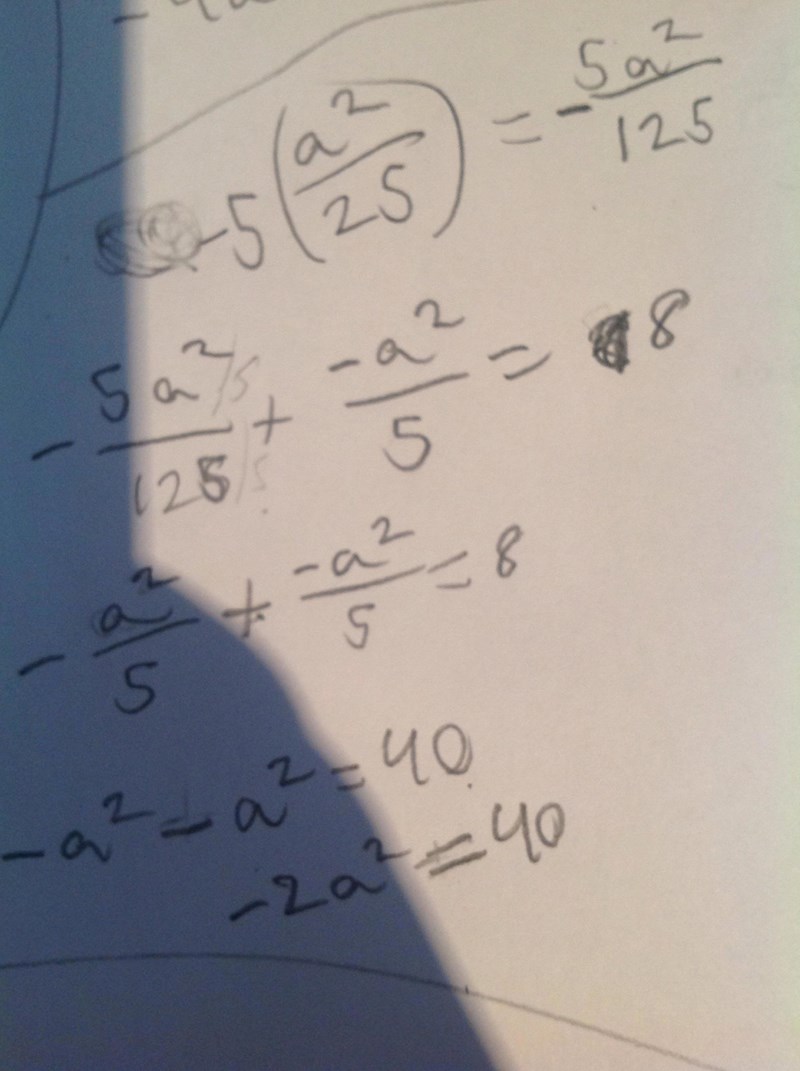 -5(a²/25) = -5a²/125
-5a²/5/125/5 + -a²/5 = 8
-a²/5 + -a²/5 = 8
-a² - a² = 40
-2a² = 40